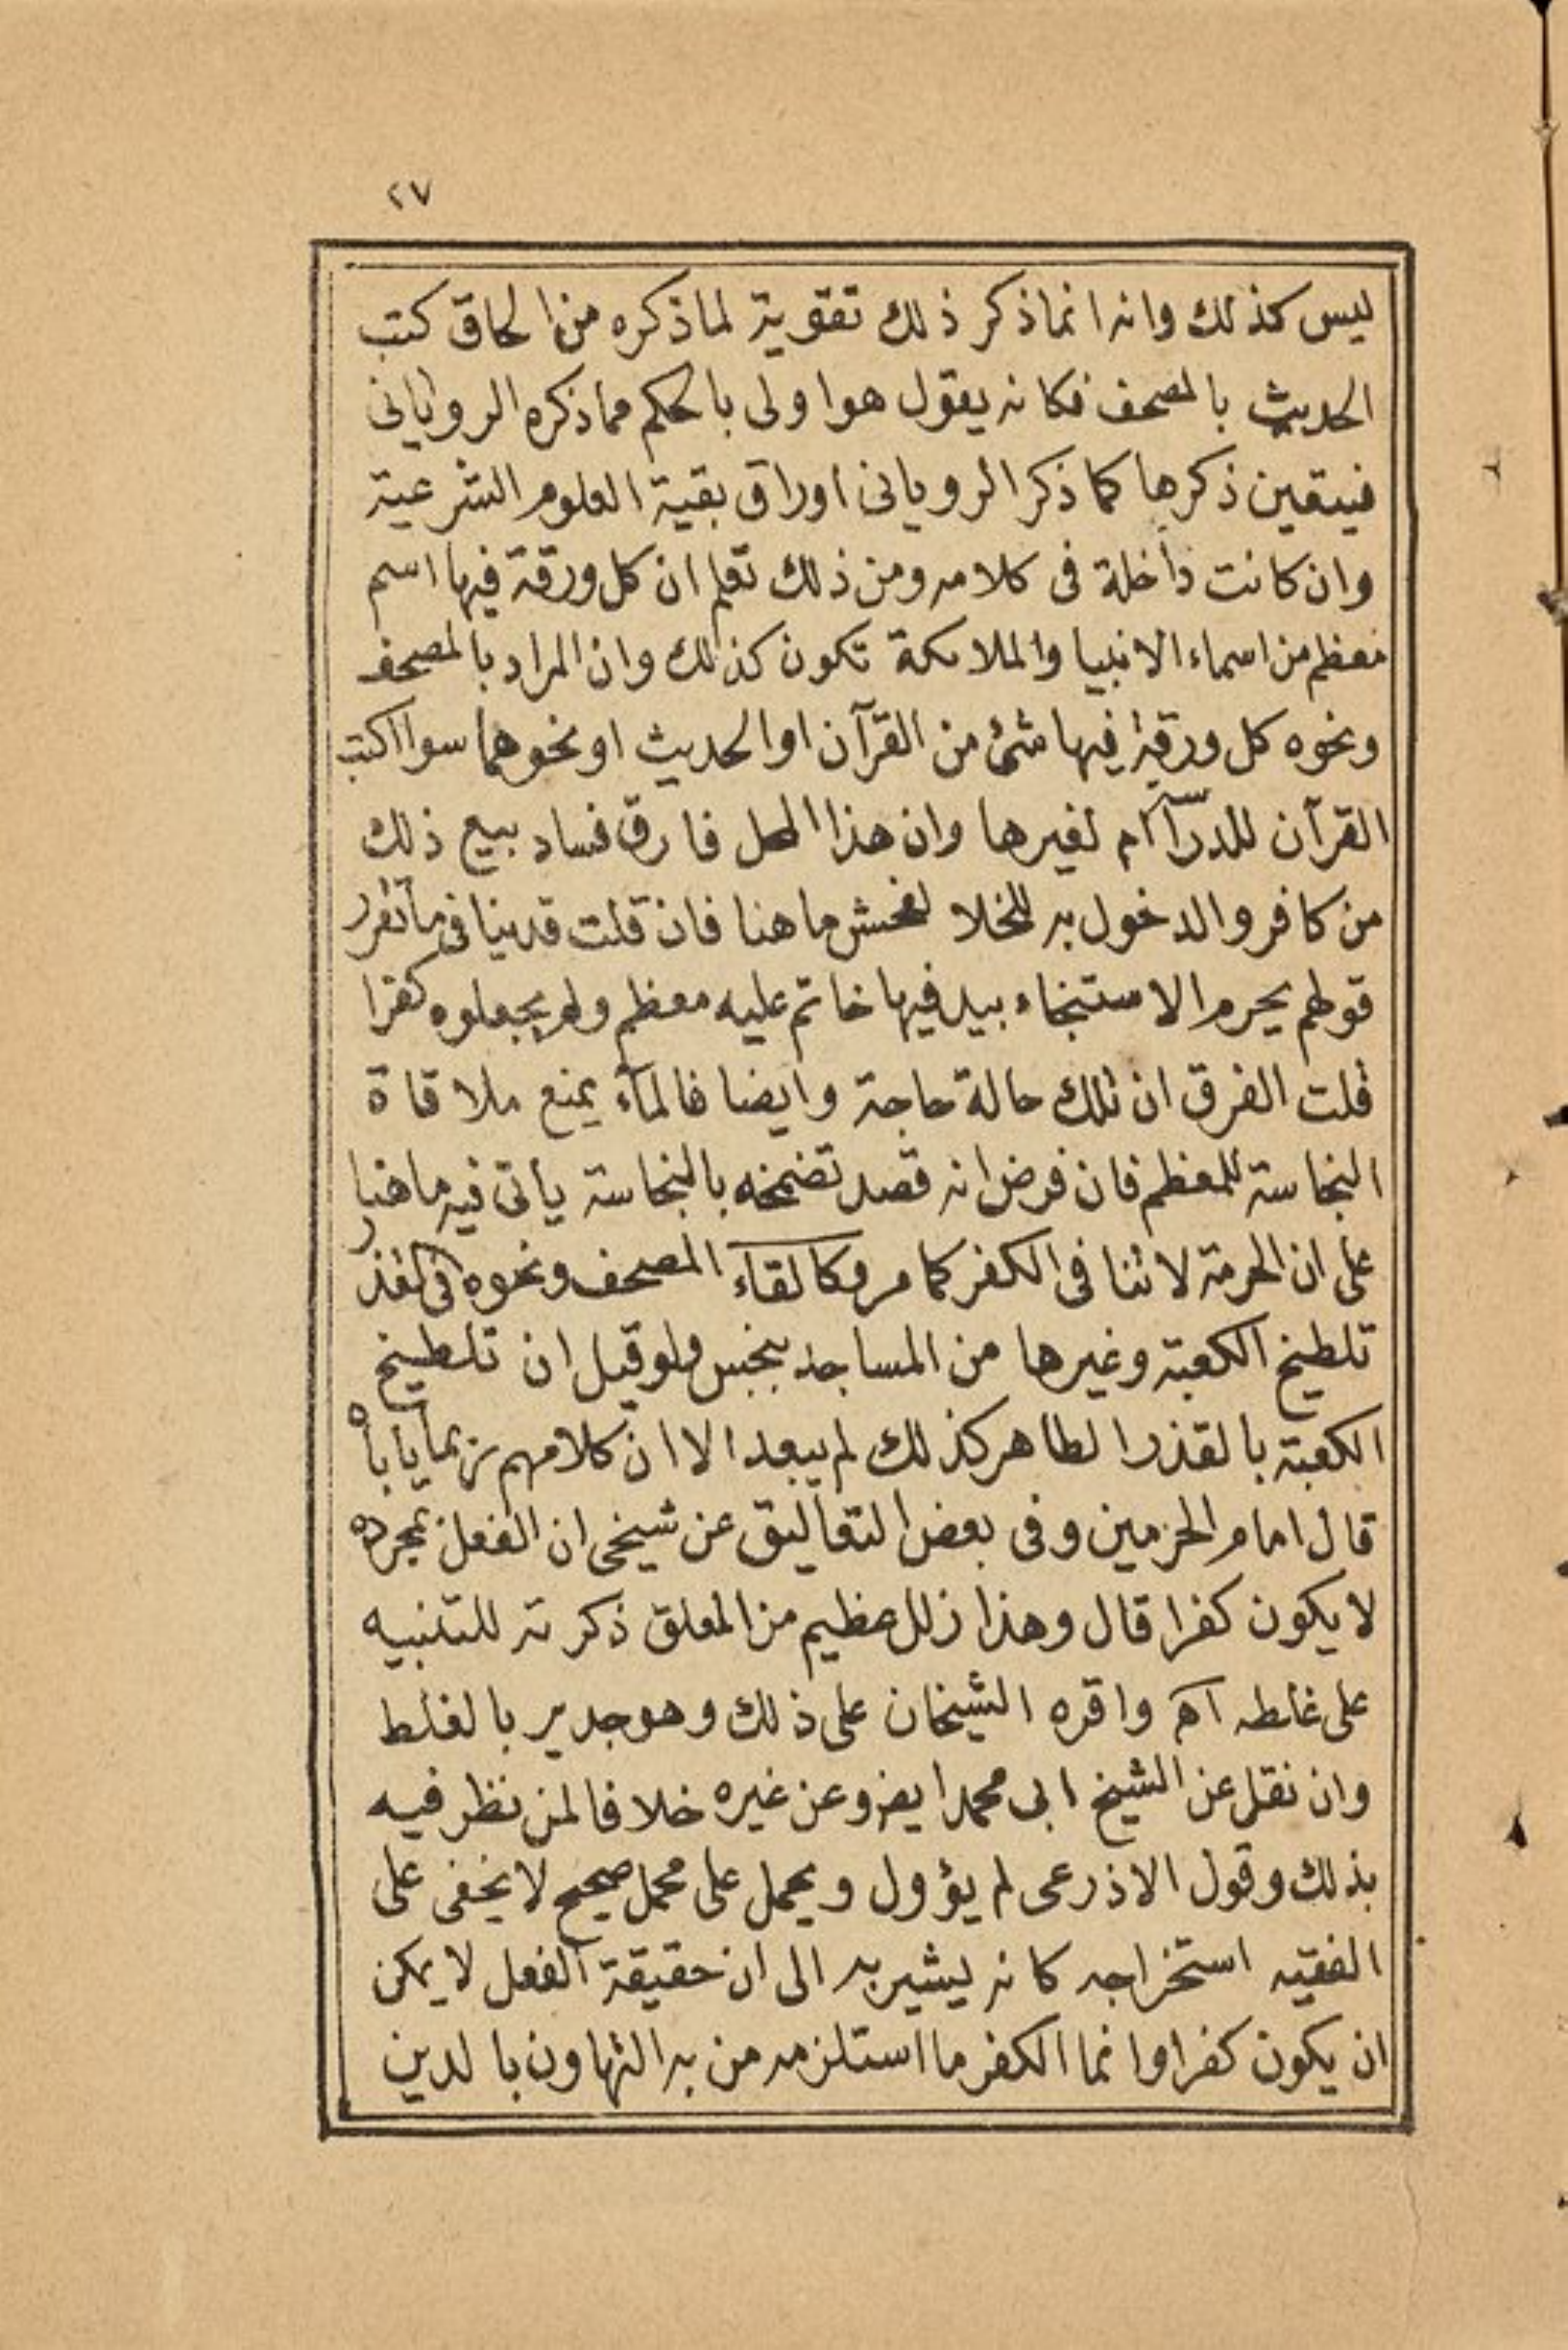 ٢٧
ليس كذلك وانه انما ذكر ذلك تقوية لما ذكره من الحاق كتب
الحديث بالمصحف فكانه يقول هو اولى بالحكم مما ذكره الروياني
فيتعين ذكرها كما ذكر الروياني اوراق بقية العلوم الشرعية
وان كانت داخلة فى كلامه ومن ذلك تعلم ان كل ورقة فيها اسم
معظم من اسماء الانبيا والملائكة تكون كذلك وان المراد بالمصحف
ونحوه كل ورقة فيها شئ من القرآن او الحديث او نحوهما سوا اكتب
القرآن للدراسة ام لغيرها وان هذا المحل فارق فساد بيع ذلك
من كافر والدخول به للخلا لفحش ما هنا فان قلت قد ينافى ما تقرر
قولهم يحرم الاستنجاء بيد فيها خاتم عليه معظم ولم يجعلوه كفرا
قلت الفرق ان تلك حالة حاجة وايضا فالمآء يمنع ملاقاة
النجاسة للمعظم فان فرض انه قصد تضمخه بالنجاسة يأتى فيه ما هنا
على ان الحرمة لا تنافى الكفر كما مر وكالقاء المصحف ونحوه فى القذر
تلطيخ الكعبة وغيرها من المساجد بنجس ولو قيل ان تلطيخ
الكعبة بالقذر الطاهر كذلك لم يبعد الا ان كلامهم ربما يأباه
قال امام الحرمين وفى بعض التعاليق عن شيخى ان الفعل بمجرده
لا يكون كفرا قال وهذا زلل عظيم من المعلق ذكرته للتنبيه
على غلطه اهـ واقره الشيخان على ذلك وهو جدير بالغلط
وان نقل عن الشيخ ابى محمد ايضا وعن غيره خلافا لمن نظر فيه
بذلك وقول الاذرعى لم يؤول ويحمل على محمل صحيح لا يخفى على
الفقيه استخراجه كانه يشير به الى ان حقيقة الفعل لا يمكن
ان يكون كفرا وانما الكفر ما استلزمه من به التهاون بالدين